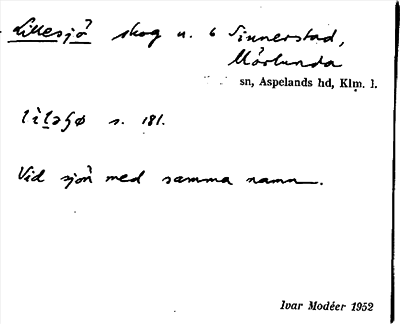 Lillesjö skog u. 6 Sinnerstad,
Mörlunda
sn, Aspelands hd, Klm. l.
s. 181.
Vid sjön med samma namn.
Ivar Modéer 1952